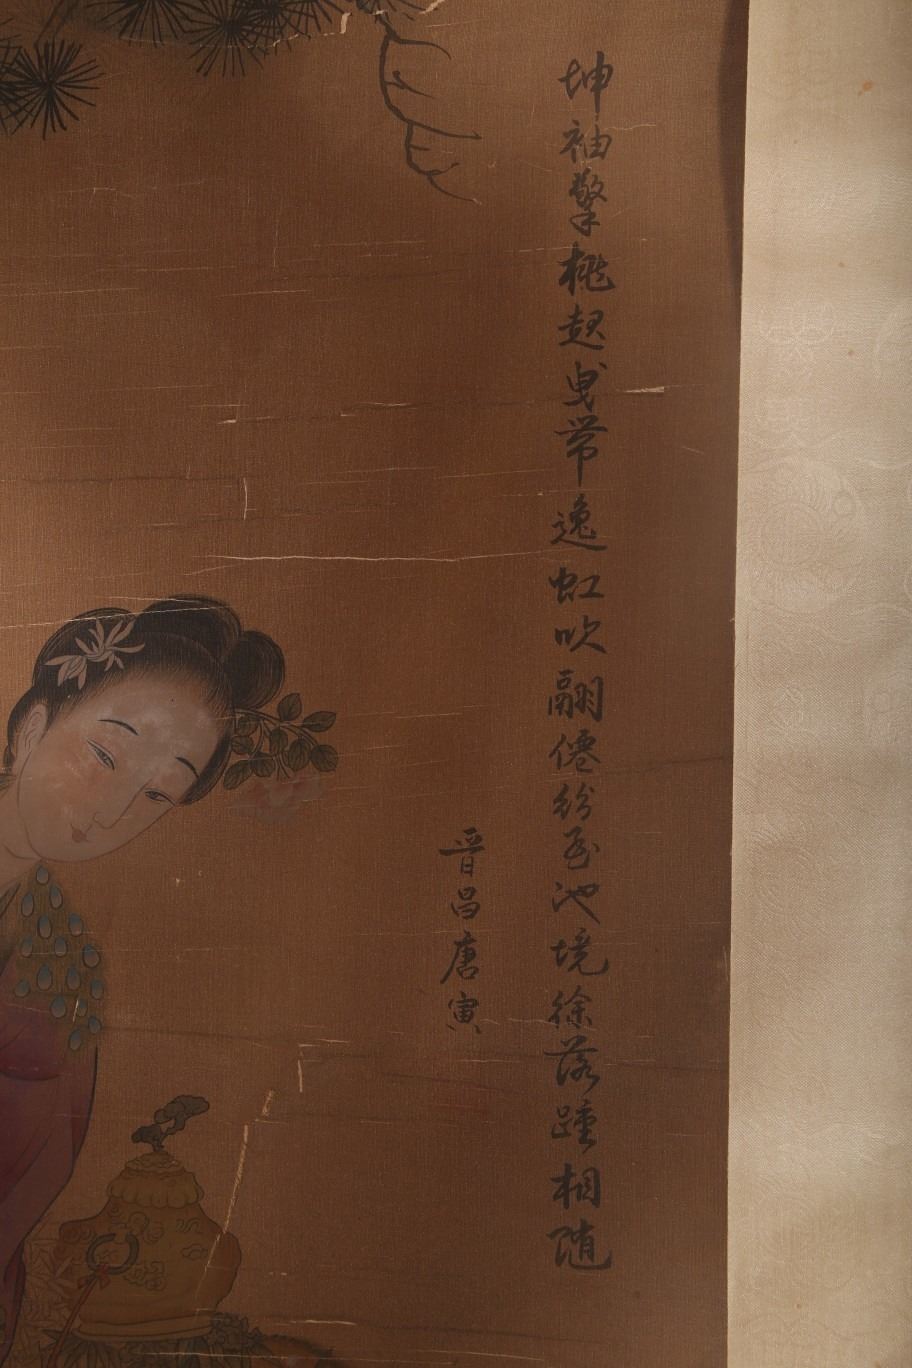 坤袖擎桃起曳带逸虹吹翮僊紛至池境徐落踵相随
晋昌唐寅